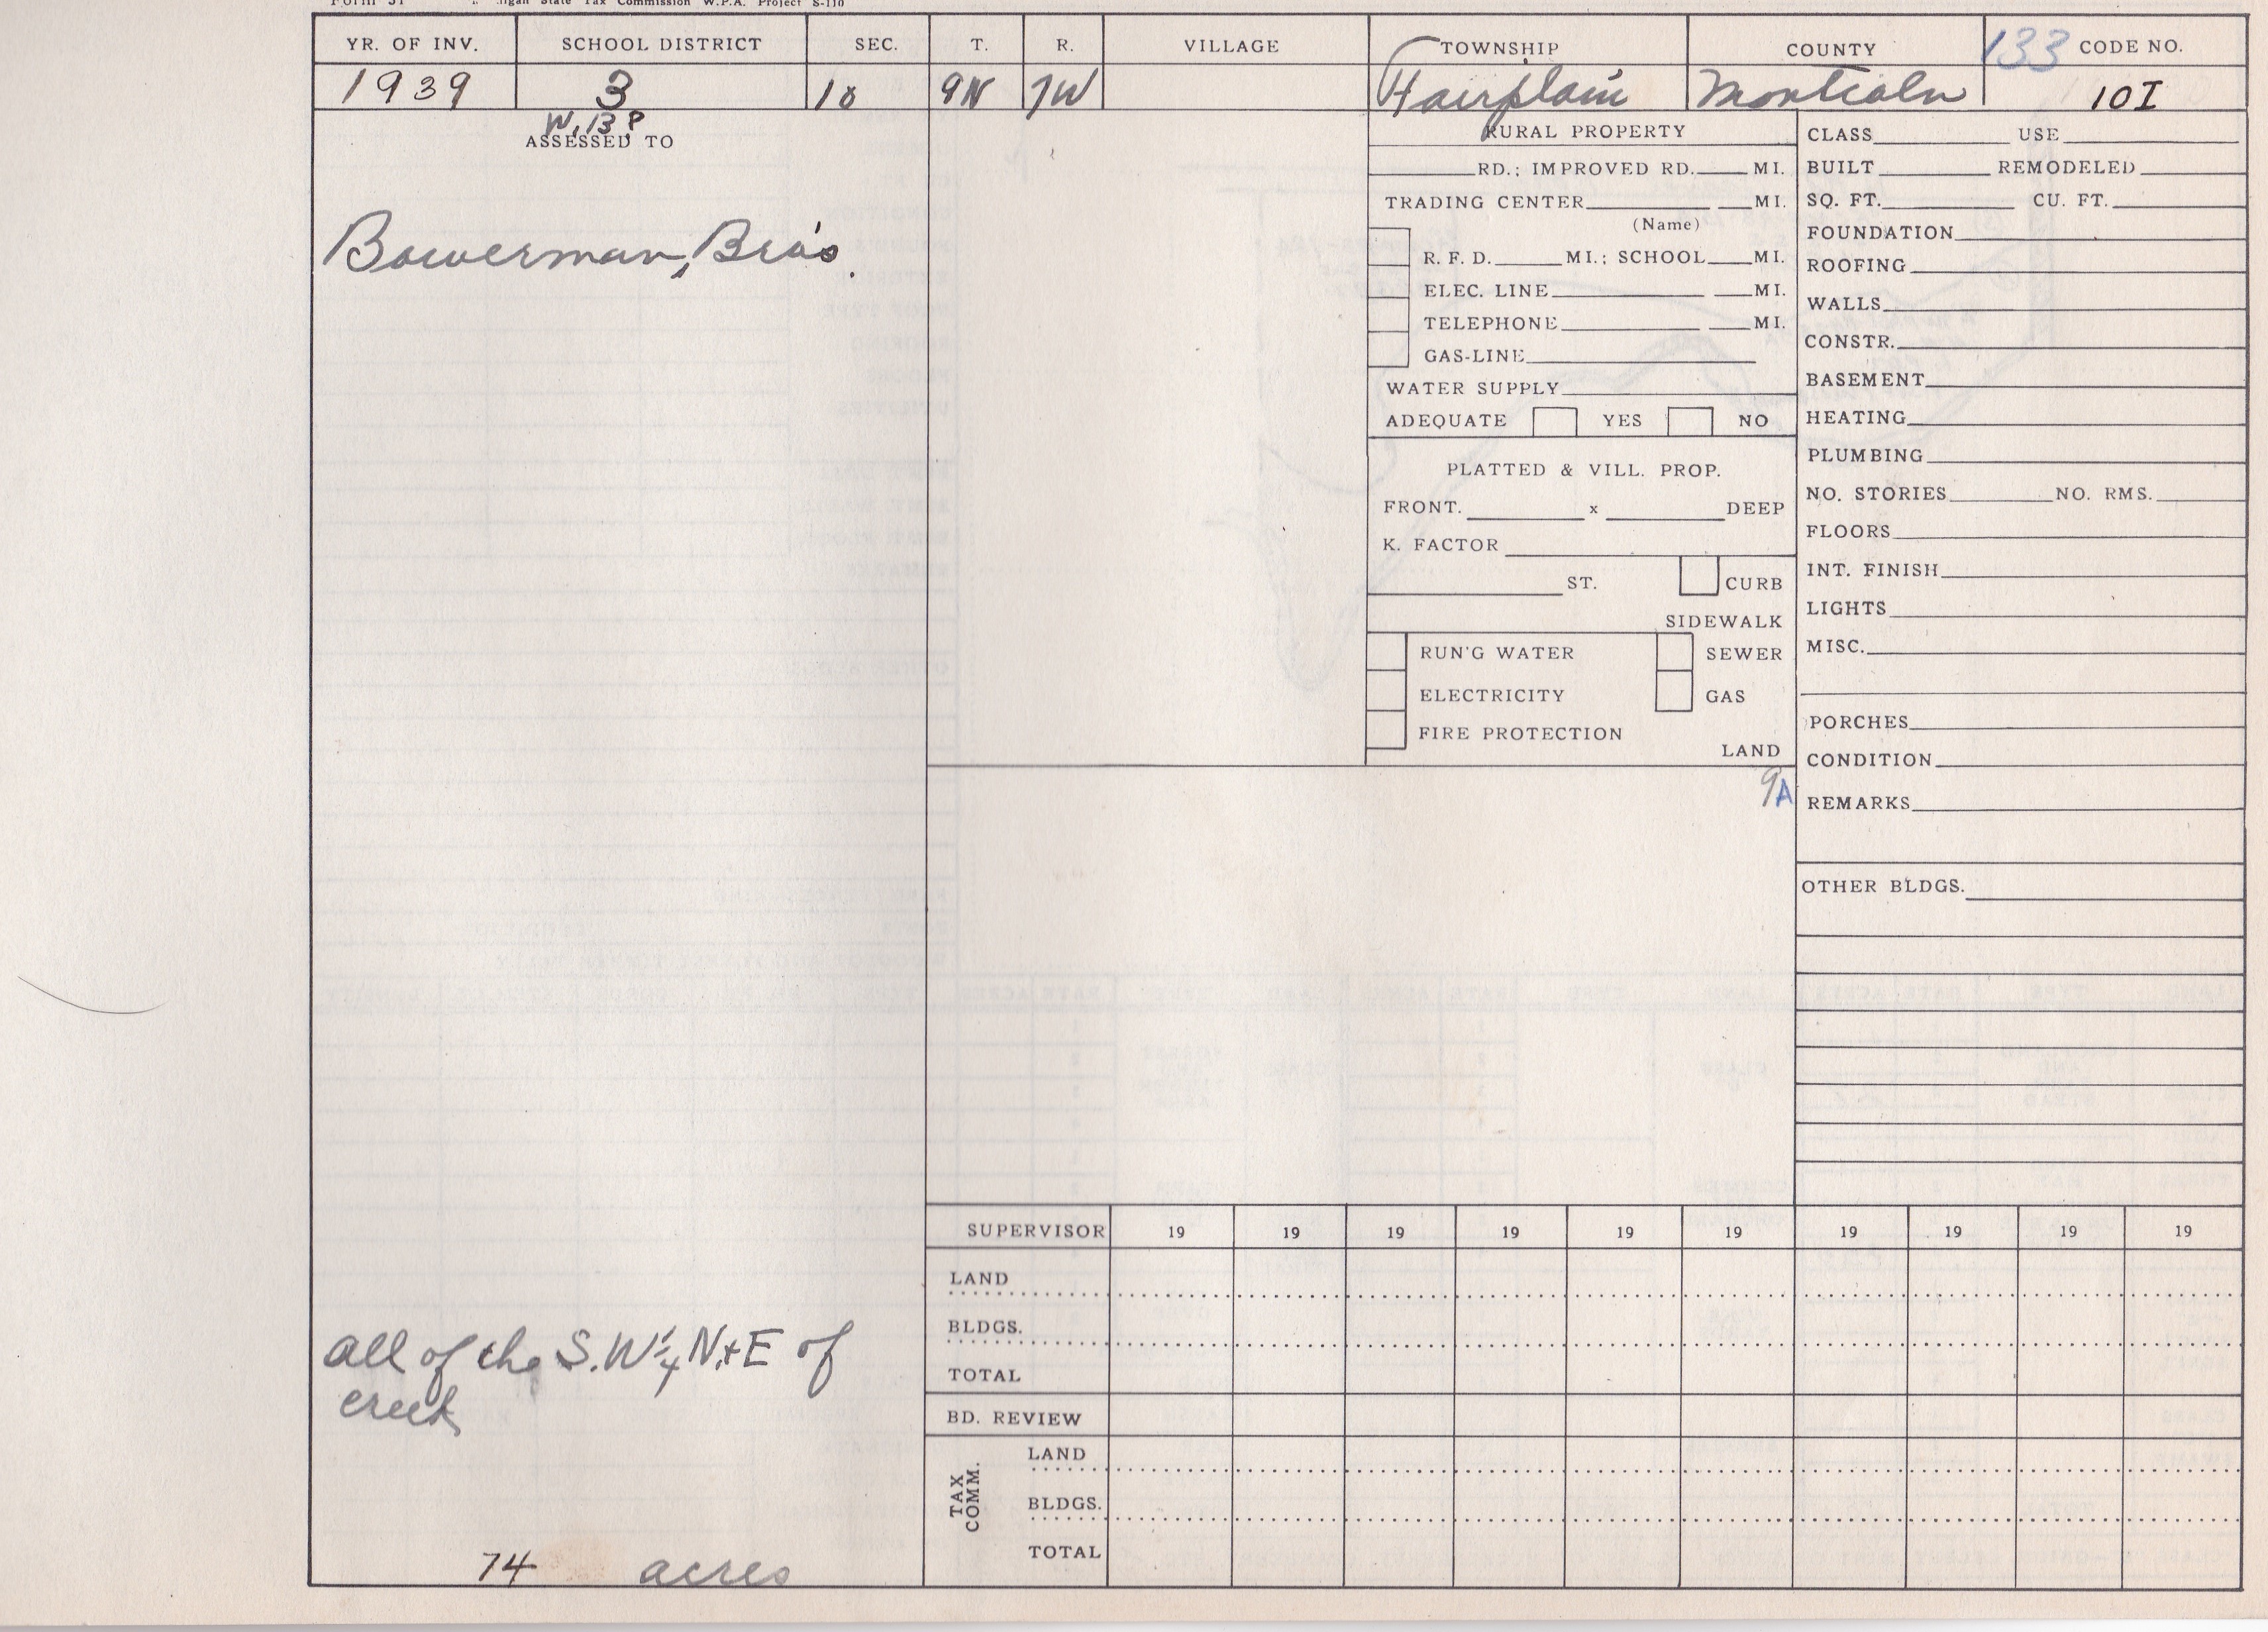 State Tax Commission W.P.A. Project S-110
YR. OF INV. SCHOOL DISTRICT SEC. T. R. VILLAGE TOWNSHIP COUNTY 133 CODE NO.
1939 3 10 9N 7W Fairplain Montcalm 10I
W.B.P
ASSESSED TO
Bowerman, Bro's.
all of the S.W 1/4 N. + E of
creek
74 acres
RURAL PROPERTY
RD.; IMPROVED RD. MI.
TRADING CENTER MI.
(Name)
R. F. D. MI.; SCHOOL MI.
ELEC. LINE MI.
TELEPHONE MI.
GAS-LINE
WATER SUPPLY
ADEQUATE YES NO
PLATTED & VILL. PROP.
FRONT. x DEEP
K. FACTOR
ST. CURB
SIDEWALK
RUN'G WATER SEWER
ELECTRICITY GAS
FIRE PROTECTION
LAND
9A
CLASS USE
BUILT REMODELED
SQ. FT. CU. FT.
FOUNDATION
ROOFING
WALLS
CONSTR.
BASEMENT
HEATING
PLUMBING
NO. STORIES NO. RMS.
FLOORS
INT. FINISH
LIGHTS
MISC.
PORCHES
CONDITION
REMARKS
OTHER BLDGS.
SUPERVISOR 19 19 19 19 19 19 19 19 19 19
LAND
BLDGS.
TOTAL
BD. REVIEW
TAX COMM.
LAND
BLDGS.
TOTAL